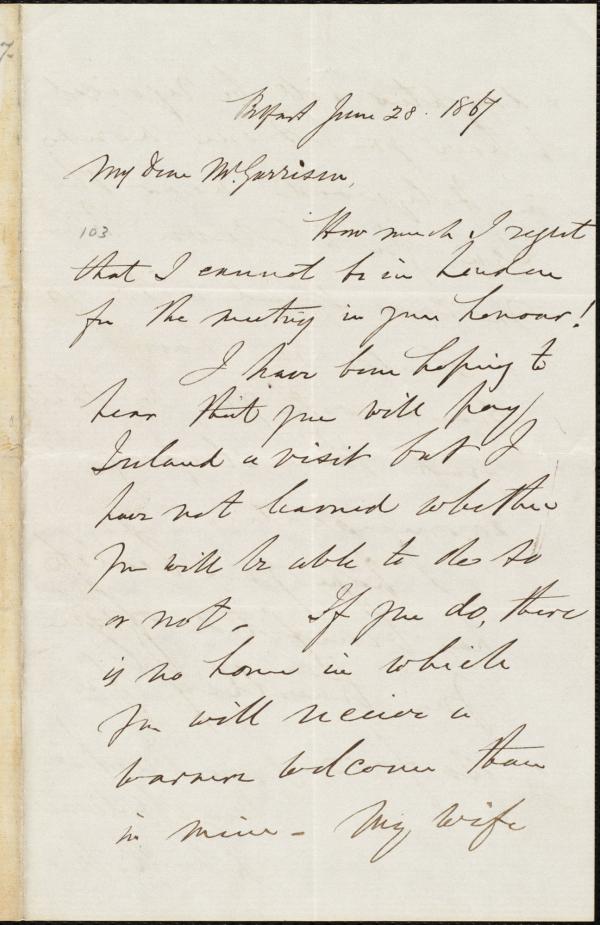 7.
Belfast June 28. 1867
My Dear Mr. Garrison,
103
How much I regret
that I cannot be in London
for the meeting in your honour!
I have been hoping to
hear that you will pay
Ireland a visit but I
have not learned whether
you will be able to do so
or not. If you do, there
is no home in which
you will receive a
warmer welcome than
in mine - My wife